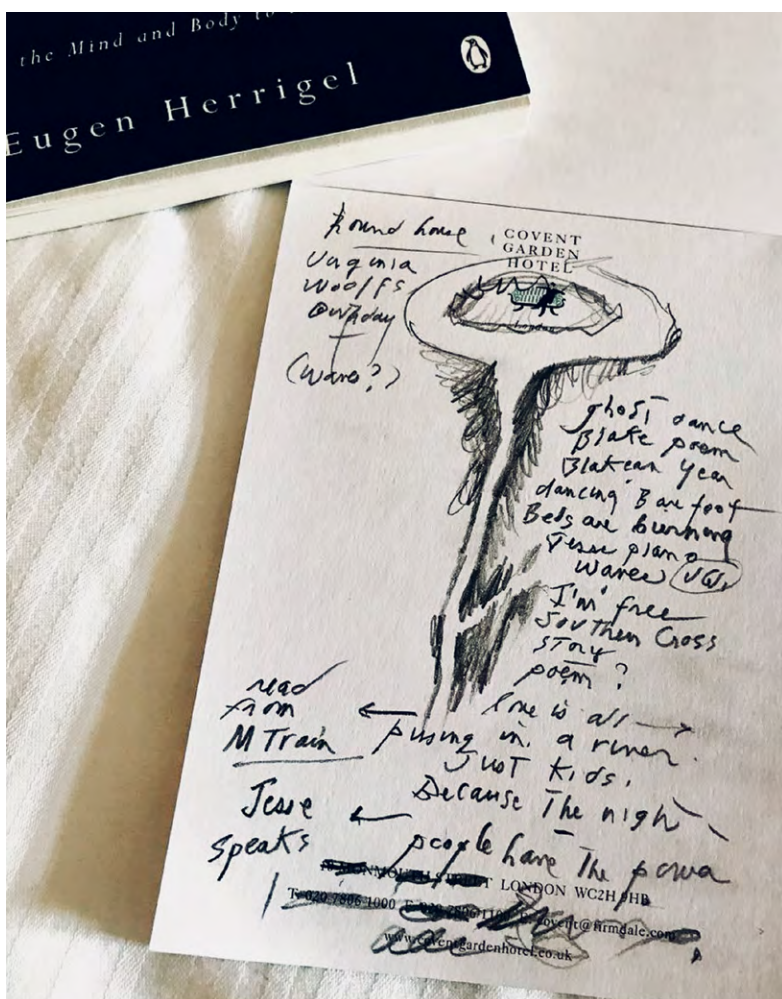 the Mind and Body to
Eugen Herrigel
Round house
COVENT
GARDEN
HOTEL
Virginia
Woolfs
Birthday
(Waves?)
ghost dance
Blake poem
Blakean Year
dancing Barefoot
Beds are burning
Jesse piano
Waves (VW)
I'm free
Southern Cross
story
poem?
love is all
read
from
M Train
pissing in a river.
Just Kids.
Because the night
Jesse
speaks
people have the powa
MONMOUTH STREET LONDON WC2H 9HB
T: 020 7806 1000 covent@firmdale.com
www.coventgardenhotel.co.uk